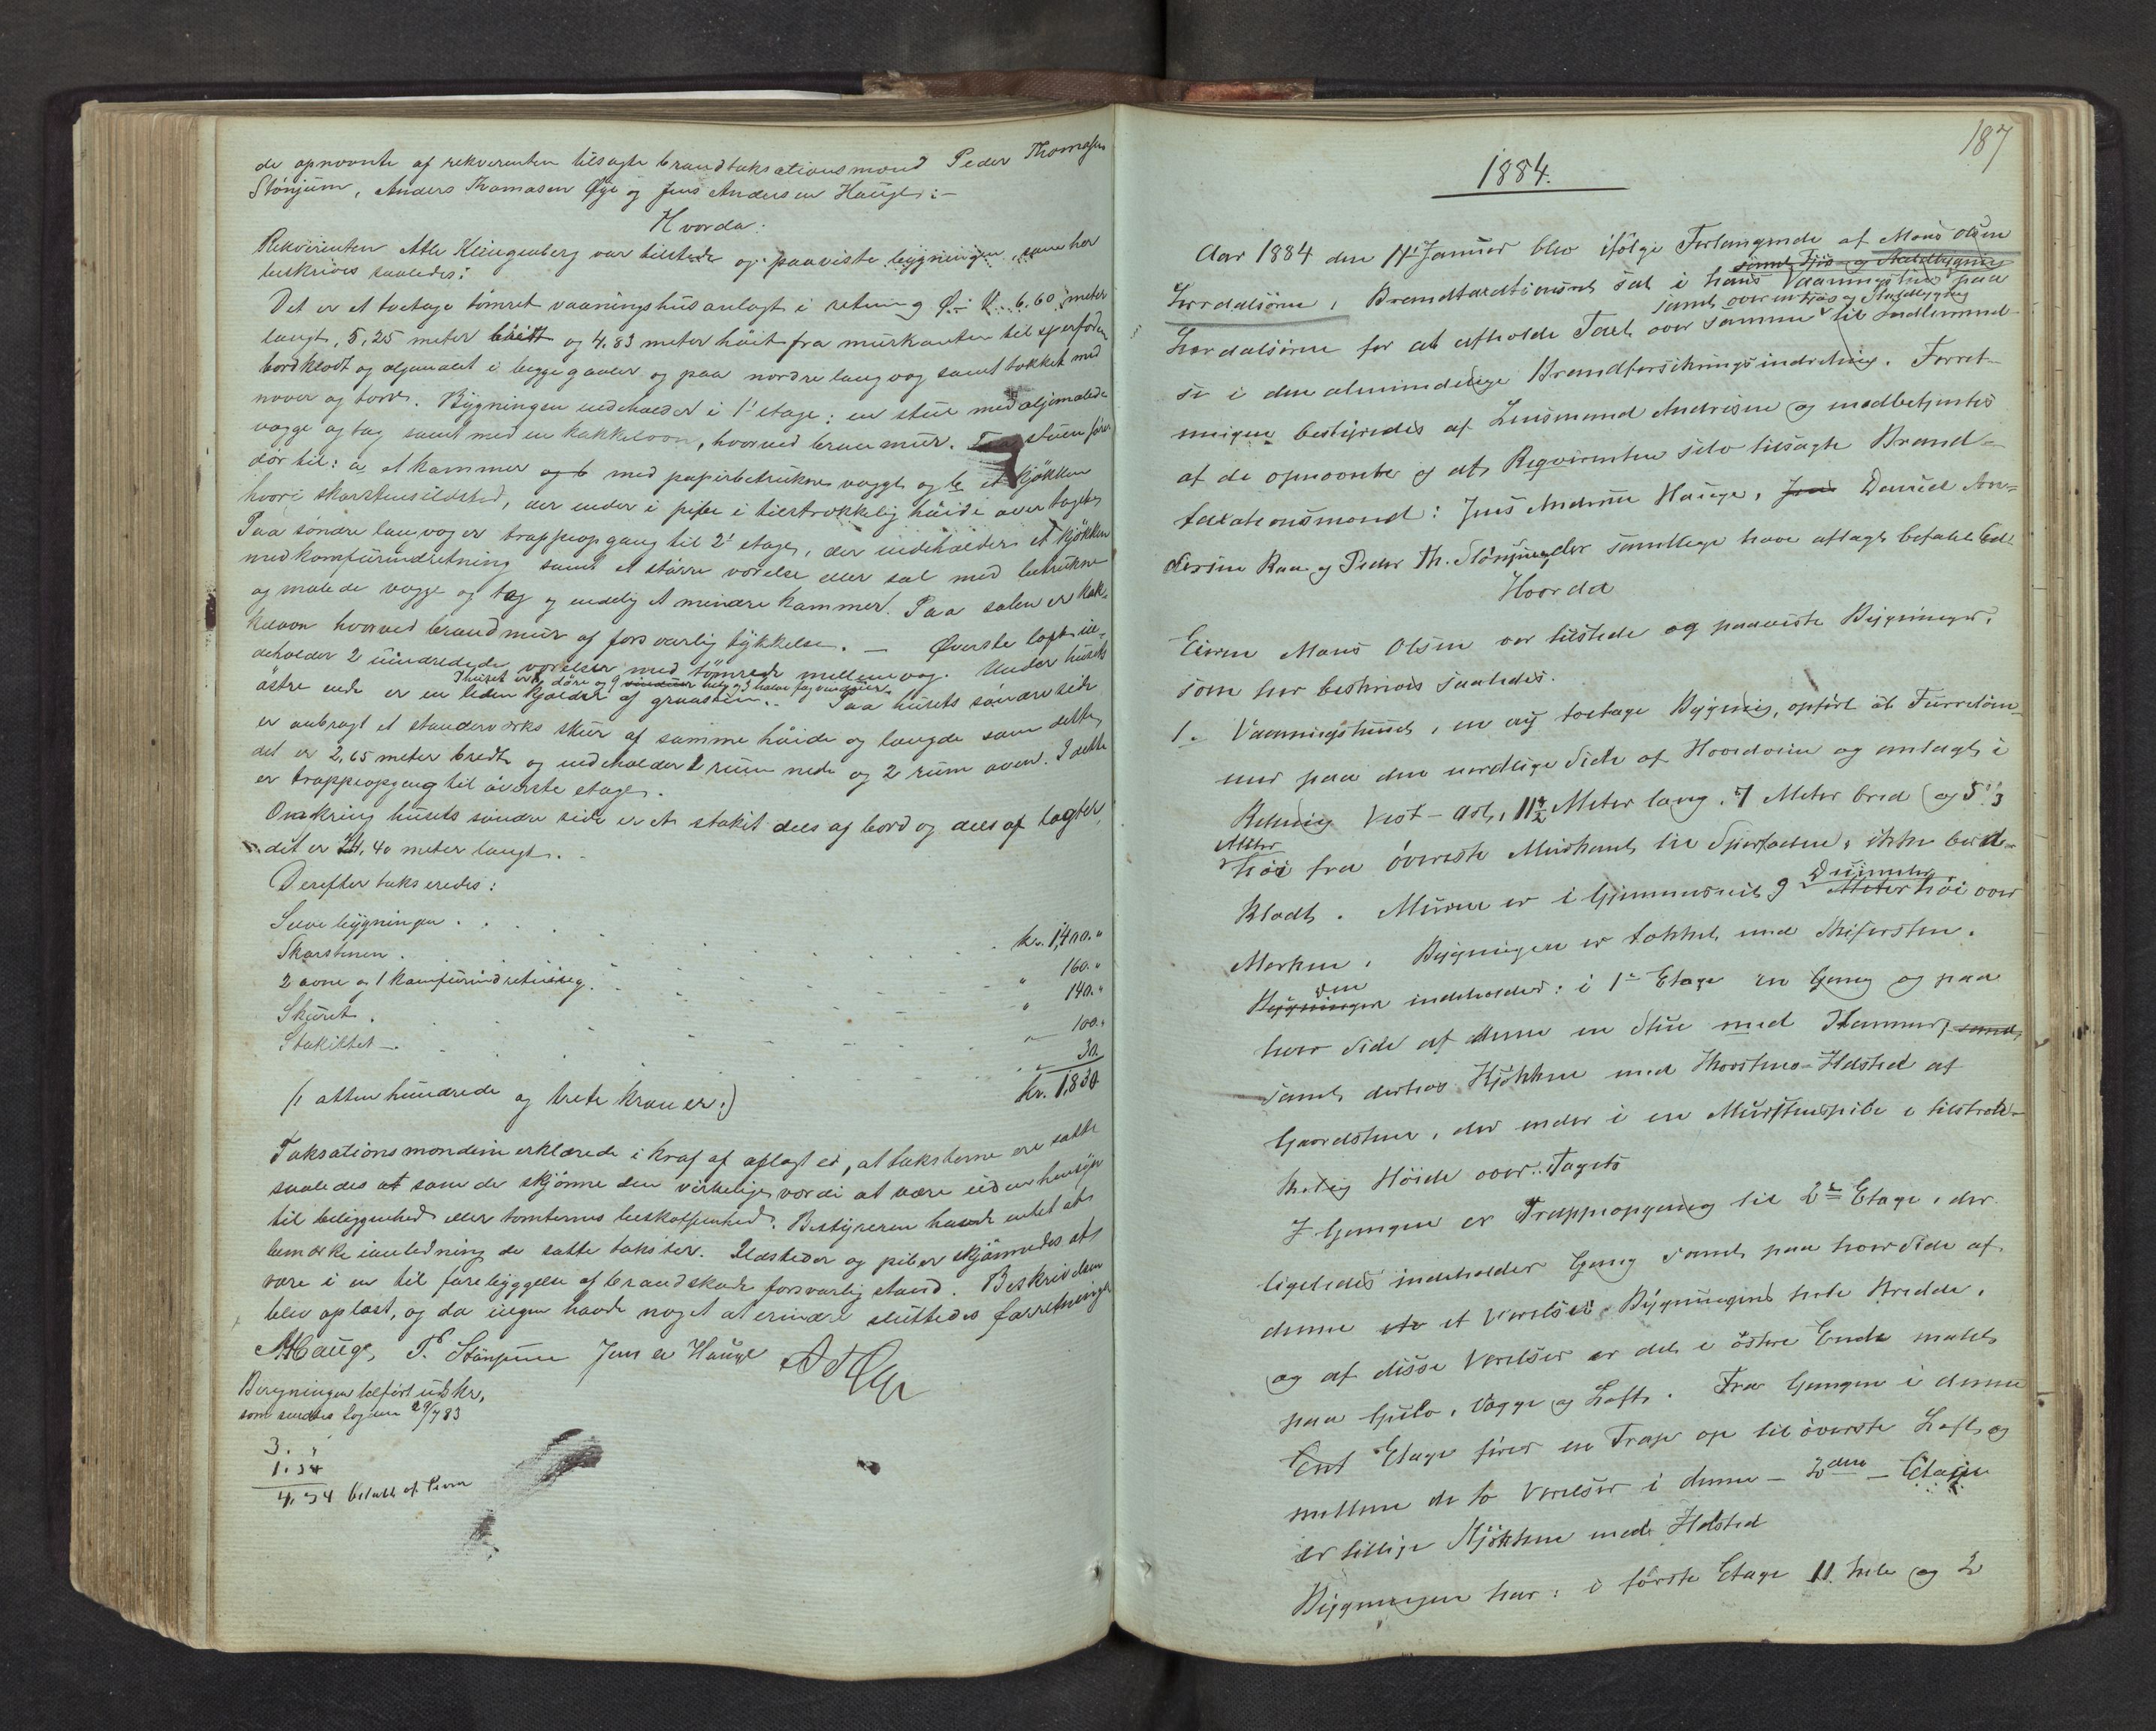 de opnævnte af rekvirenten tilsagte brandtaksationsmænd Peder Thomasen
Stönjum, Anders Thomasen Öye og Jens Andersen Hauge:-
Hvorda:
Rekvirenten Atle Klingenberg var tilstede og paaviste bygningen, som her
beskrives saaledes:
Det er et toetages tömret vaaningshus anlagt i retning Ö.-V. 6,60 meter
langt, 5,25 meter bredt og 4.83 meter höit fra murkanten til sperfoden
bordklædt og oljemalet i begge gavler og paa nordre langvæg samt tækket med
næver og torv. Bygningen indeholder i 1ste etage: en stue med oljemalede
vægge og tag samt med en kakkelovn, hvorved brandmur. Fra stuen förer
dör til: a et kammer og b med papirbetrukne vægge og b et kjökken
hvori skorstensildsted, der ender i pibe i tilstrækkelig höide over taget.
Paa söndre langvæg er trappeopgang til 2den etage, der indeholder et kjökken
med komfurindretning samt et större værelse eller sal med betrukne
og malede vægge og tag og endelig et mindre kammer. Paa salen er kak-
kelovn hvorved brandmur af forsvarlig tykkelse. — Överste loft in-
deholder 2 uindredede værelser med tömrede mellemvæg. Under husets
I huset er 8 döre og 9 vinduer hele og 3 halve fag vinduer.
östre ende er en liden kjælder af graasten. Paa husets söndre side
er anbragt et standerværks skur af samme höide og længde som dette,
det er 2,65 meter bredt og indeholder 2 rum nede og 2 rum oven. I dette
er trappeopgang til överste etage.
Omkring husets söndre side er et stakit dels af bord og dels af lægter,
det er 24,40 meter langt.
Derefter takseredes:
Selve bygningen . . . . kr. 1,400."
Skorstenen . . . . " 160."
2 ovne og 1 komfurindretning . . . " 140."
Skuret . . . . " 100."
Stakittet — . . . . " 30.
(: atten hundrede og trete kroner:) kr. 1,830
Taksationsmændene erklærede i kraf af aflagt ed, at taksterne ere satte
saaledes at som de skjönne den virkelige værdi at være uden hensyn
til beliggenhed eller tomternes beskaffenhed. Bestyreren havde intet at
bemærke i anledning de satte takster. Ildsteder og piber skjönnedes at
være i en til forebyggelse af brandskade forsvarlig stand. Beskrivelsen
blev oplæst, og da ingen havde noget at erindre sluttedes forretningen
AHauge, P. Stönjum Jens A Hauge A T Öye
Beregningen tilfört 3 kr,
som sendtes Sogn den 29/7 83
3. "
1.34
4,34 betalt af Eieren
187
1884.
Aar 1884 den 11te Januar blev ifölge Forlangende af Mons Olsen
samt Fjös- og Staldbygning
Lærdalsören, Brandtaxationsret sat i hans Vaaningshus paa
samt over en Fjös og Staldbygning
Lærdalsören for at afholde Taxt over samme til Indlemmel-
se i den almindelige Brandforsikringsindretning. Forret-
ningen bestyredes af Lensmand Andresen og medbetjentes
af de opnævnte og af Reqvirenten selv tilsagte Brand-
taxationsmænd: Jens Andersen Hauge, Jens Daniel An-
dersen Raa og Peder Th. Stönjum der samtlige have aflagt befalet Ed.
Hvorda
Eieren Mons Olsen var tilstede og paaviste Bygninger,
som her beskrives saaledes.
1. Vaaningshuset, en ny toetage Bygning, opfört af Furretöm-
mer paa den nordlige Side af Hovedveien og anlagt i
Retning Vest-Ost, 11 1/2 Meter lang, 7 Meter bred og 5.3
Meter
höi fra överste Murkant til Sperfoden, ikke bord-
klædt. Muren er i Gjennemsnit 9 Decimeter
Meter höi over
Marken. Bygningen er tækket med Skifersten.
Den
Bygningen indeholder: i 1ste Etage en Gang og paa
hver Side af denne en Stue med Kammer, samt
samt derhos Kjökken med Skorstens-Ildsted af
Gaardstener, der ender i en Murstenspibe i tilstræk-
kelig Höide over Taget.
I Gangen er Trappeopgang til 2den Etage, der
ligeledes indeholder Gang samt paa hver Side af
denne et Værelse i Bygningens hele Bredde,
og af disse Værelser er det i östre Ende malet
paa Gulv, Vægge og Loft. Fra Gangen i denne
Etage förer en Trap op til överste Loft, og
mellem de to Værelser i denne – 2den – Etage
er tillige Kjökken med Ildsted
Bygningen har: i förste Etage 11 hele og 2